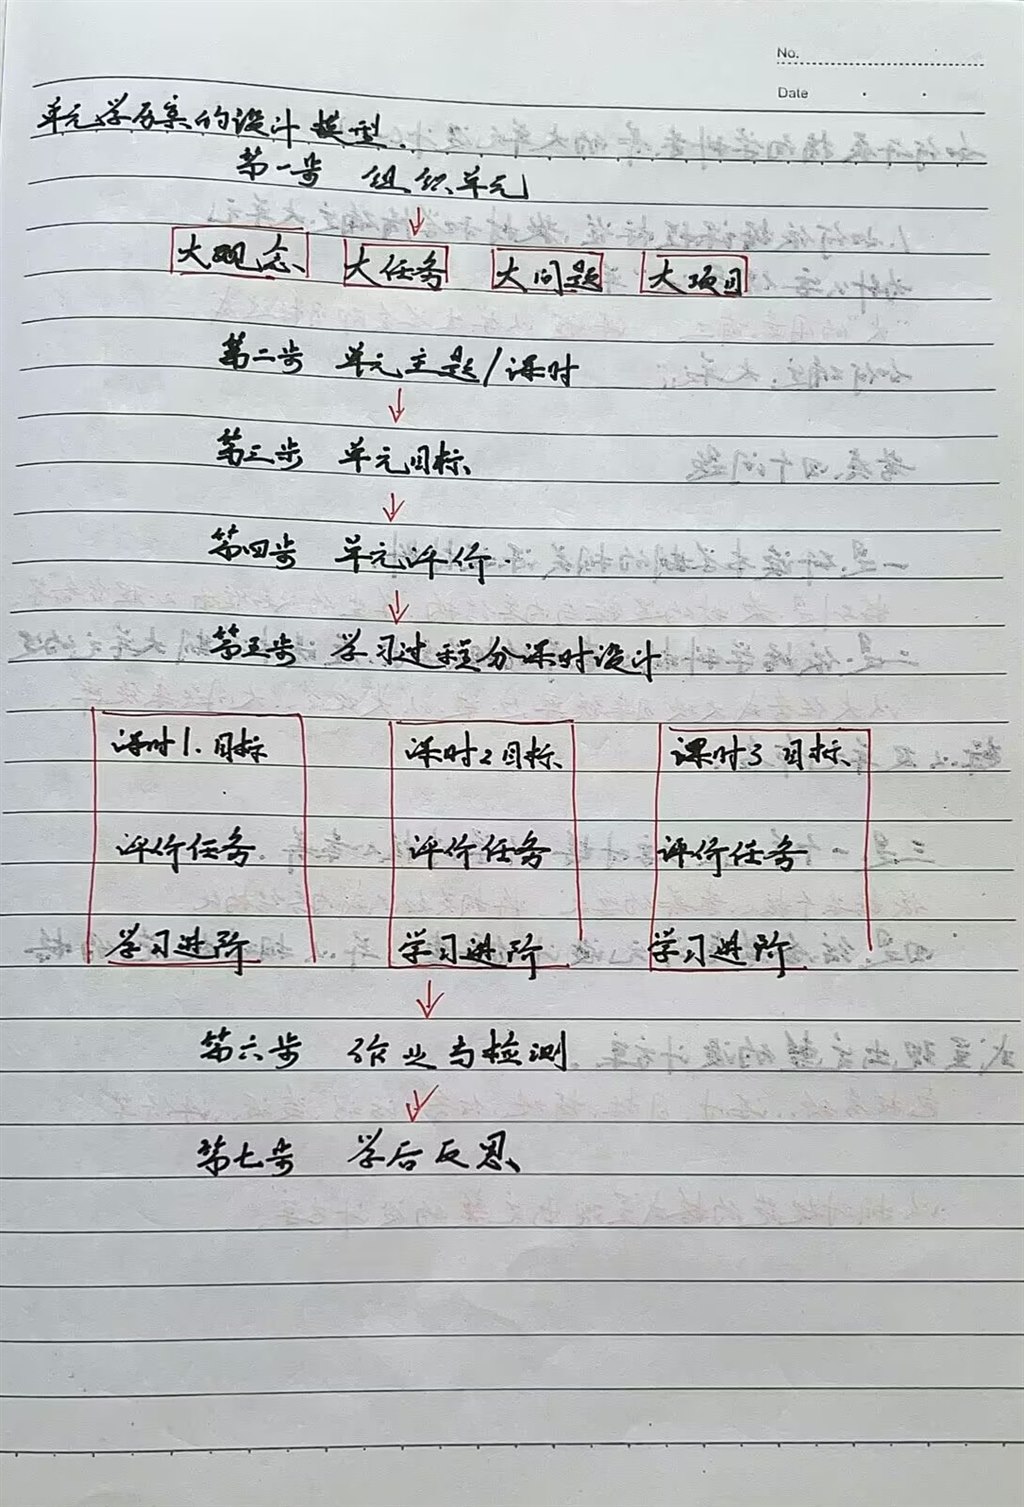 No.
Date
单元学历案的设计模型.
第一步 组织单元
大观念 大任务 大问题 大项目
第二步 单元主题/课时
第三步 单元目标
第四步 单元评价
第五步 学习过程分课时设计
课时1.目标 课时2目标 课时3目标
评价任务 评价任务 评价任务
学习进阶 学习进阶 学习进阶
第六步 作业与检测
第七步 学后反思